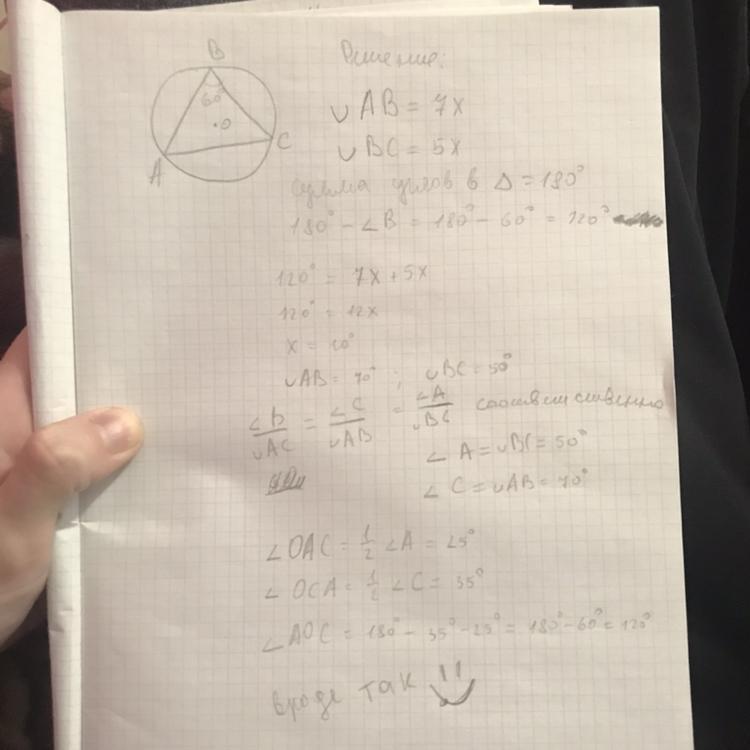 B
60°
O
C
A
Решение:
∪AB = 7x
∪BC = 5x
сумма углов в Δ = 180°
180° - ∠B = 180° - 60° = 120°
120° = 7x + 5x
120° = 12x
x = 10°
∪AB = 70° ; ∪BC = 50°
∠B/∪AC = ∠C/∪AB = ∠A/∪BC соответственно
∠A = ∪BC = 50°
∠C = ∪AB = 70°
∠OAC = 1/2 ∠A = 25°
∠OCA = 1/2 ∠C = 35°
∠AOC = 180° - 35° - 25° = 180° - 60° = 120°
вроде так